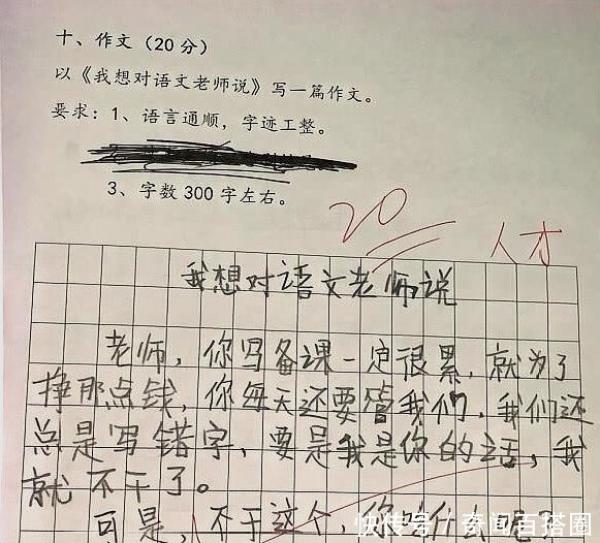 十、作文（20分）
以《我想对语文老师说》写一篇作文。
要求：1、语言通顺，字迹工整。
3、字数 300 字左右。
20
人才
我想对语文老师说
老师，你写备课一定很累，就为了
挣那点钱，你每天还要管我们，我们还
总是写错字，要是我是你的话，我
就不干了。
可是，不干这个，你吃什么呢？
快传号 / 奇闻百搭圈